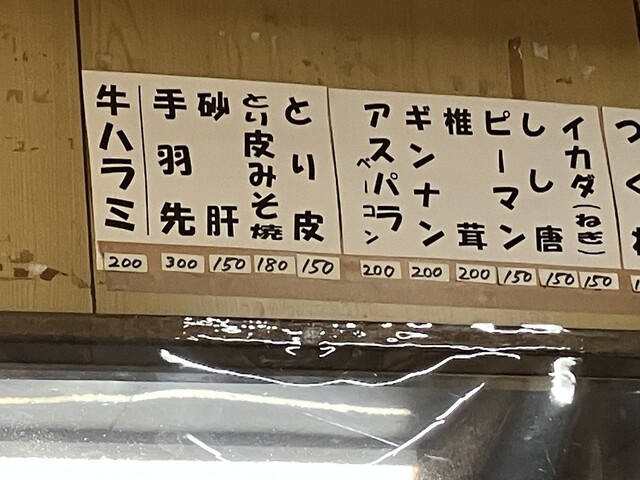 イカダ(ねぎ)
150
しし唐
150
ピーマン
150
椎茸
200
ギンナン
200
アスパラ
ベーコン
200
とり皮
150
とり皮みそ焼
180
砂肝
150
手羽先
300
牛ハラミ
200